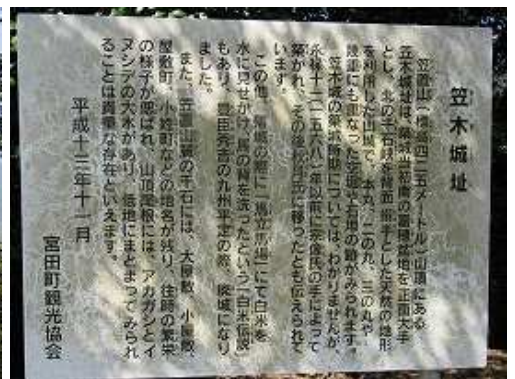 笠木城址
笠置山(標高四二五メートル)山頂にある
笠木城址は、築城当初南の
を正面大手
とし、北の千石峡を背面搦手とした天然の地形
を利用した山城で、本丸、二の丸、三の丸や
空堀や石垣の跡がみられます。
笠木城の築城時期については、わかりませんが、
永禄十一(一五六八)年以前に宗像氏の手によって
築かれ、その後秋月氏に移ったとも伝えられて
います。
この他、落城の際に「馬立馬場」にて白米を
水に見せかけ、馬の背を洗ったという「白米伝説」
もあり、豊臣秀吉の九州平定の際、廃城になり
ました。
また、笠置山麓の千石には、大屋敷、小屋敷、
屋敷町、小姓町などの地名が残り、往時の繁栄
の様子が偲ばれ、山頂尾根には、アカガシとイ
ヌシデの大木があり、低地にまとまってみられ
ることは貴重な存在といえます。
平成十三年十一月
宮田町観光協会